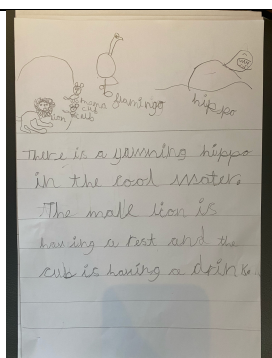 mama
cat
cub
lion
flamingo
hippo
There is a yawning hippo
in the cool water.
The male lion is
having a rest and the
cub is having a drink.